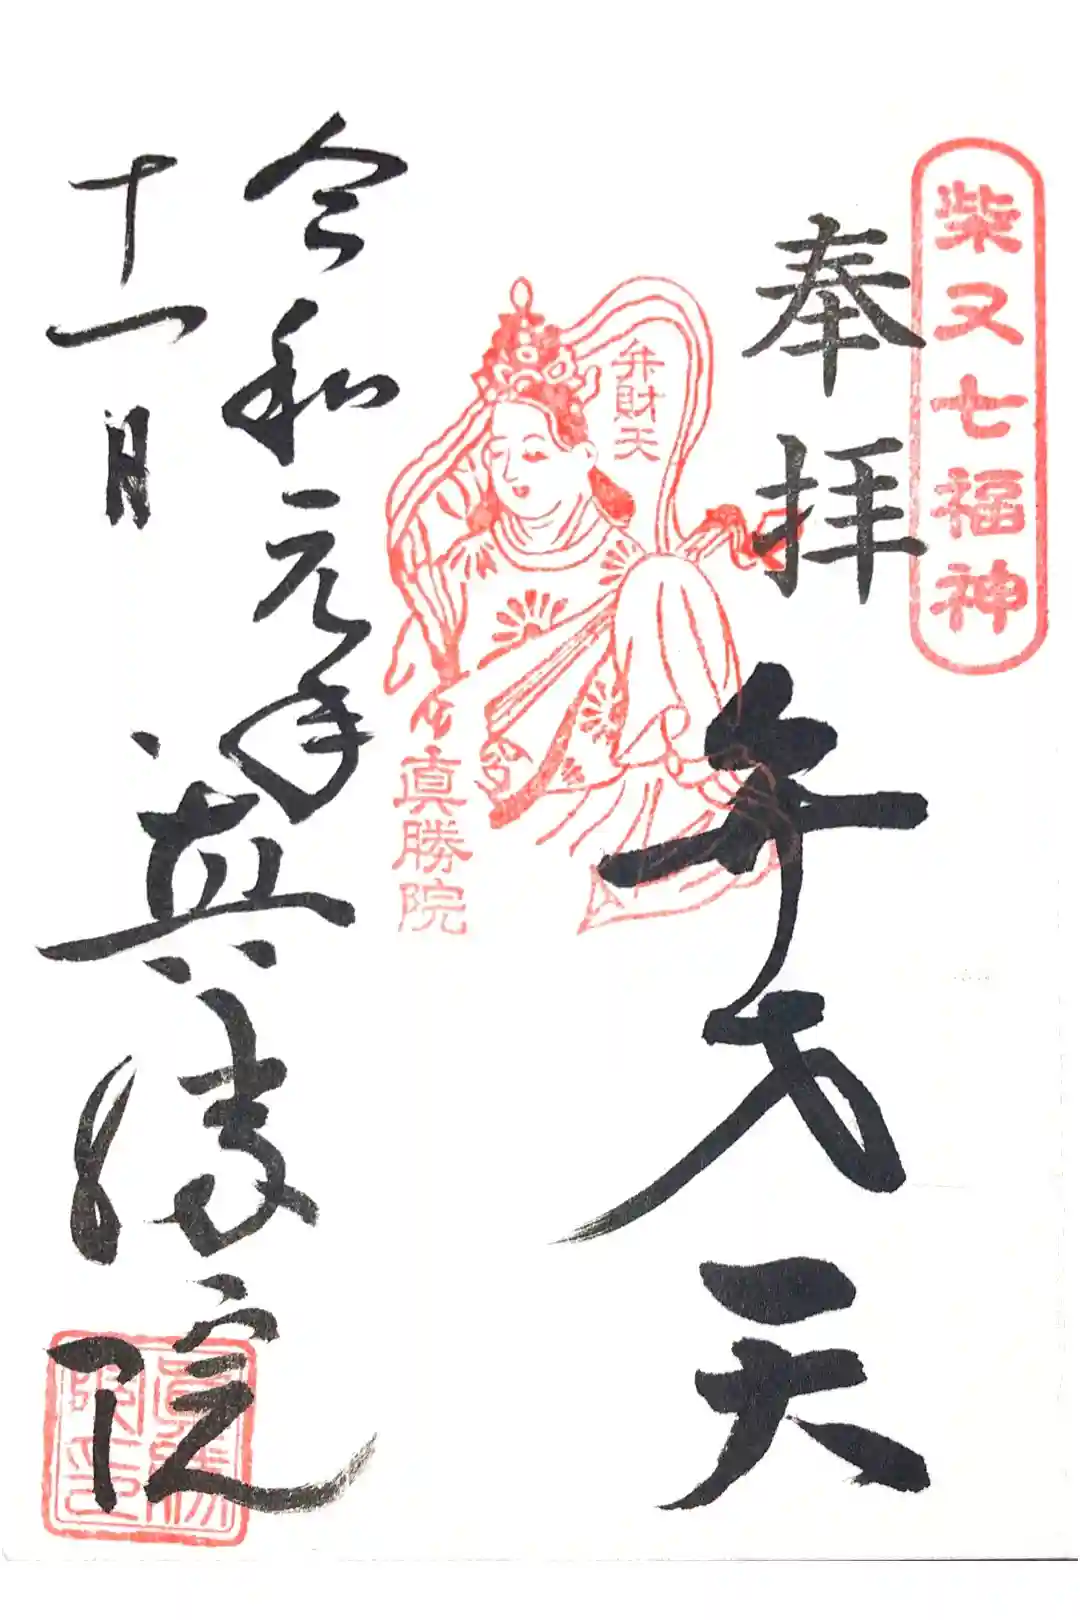 柴又七福神
奉拝
弁才天
弁財天
真勝院
令和元年
十一月
真勝院
眞勝
院印